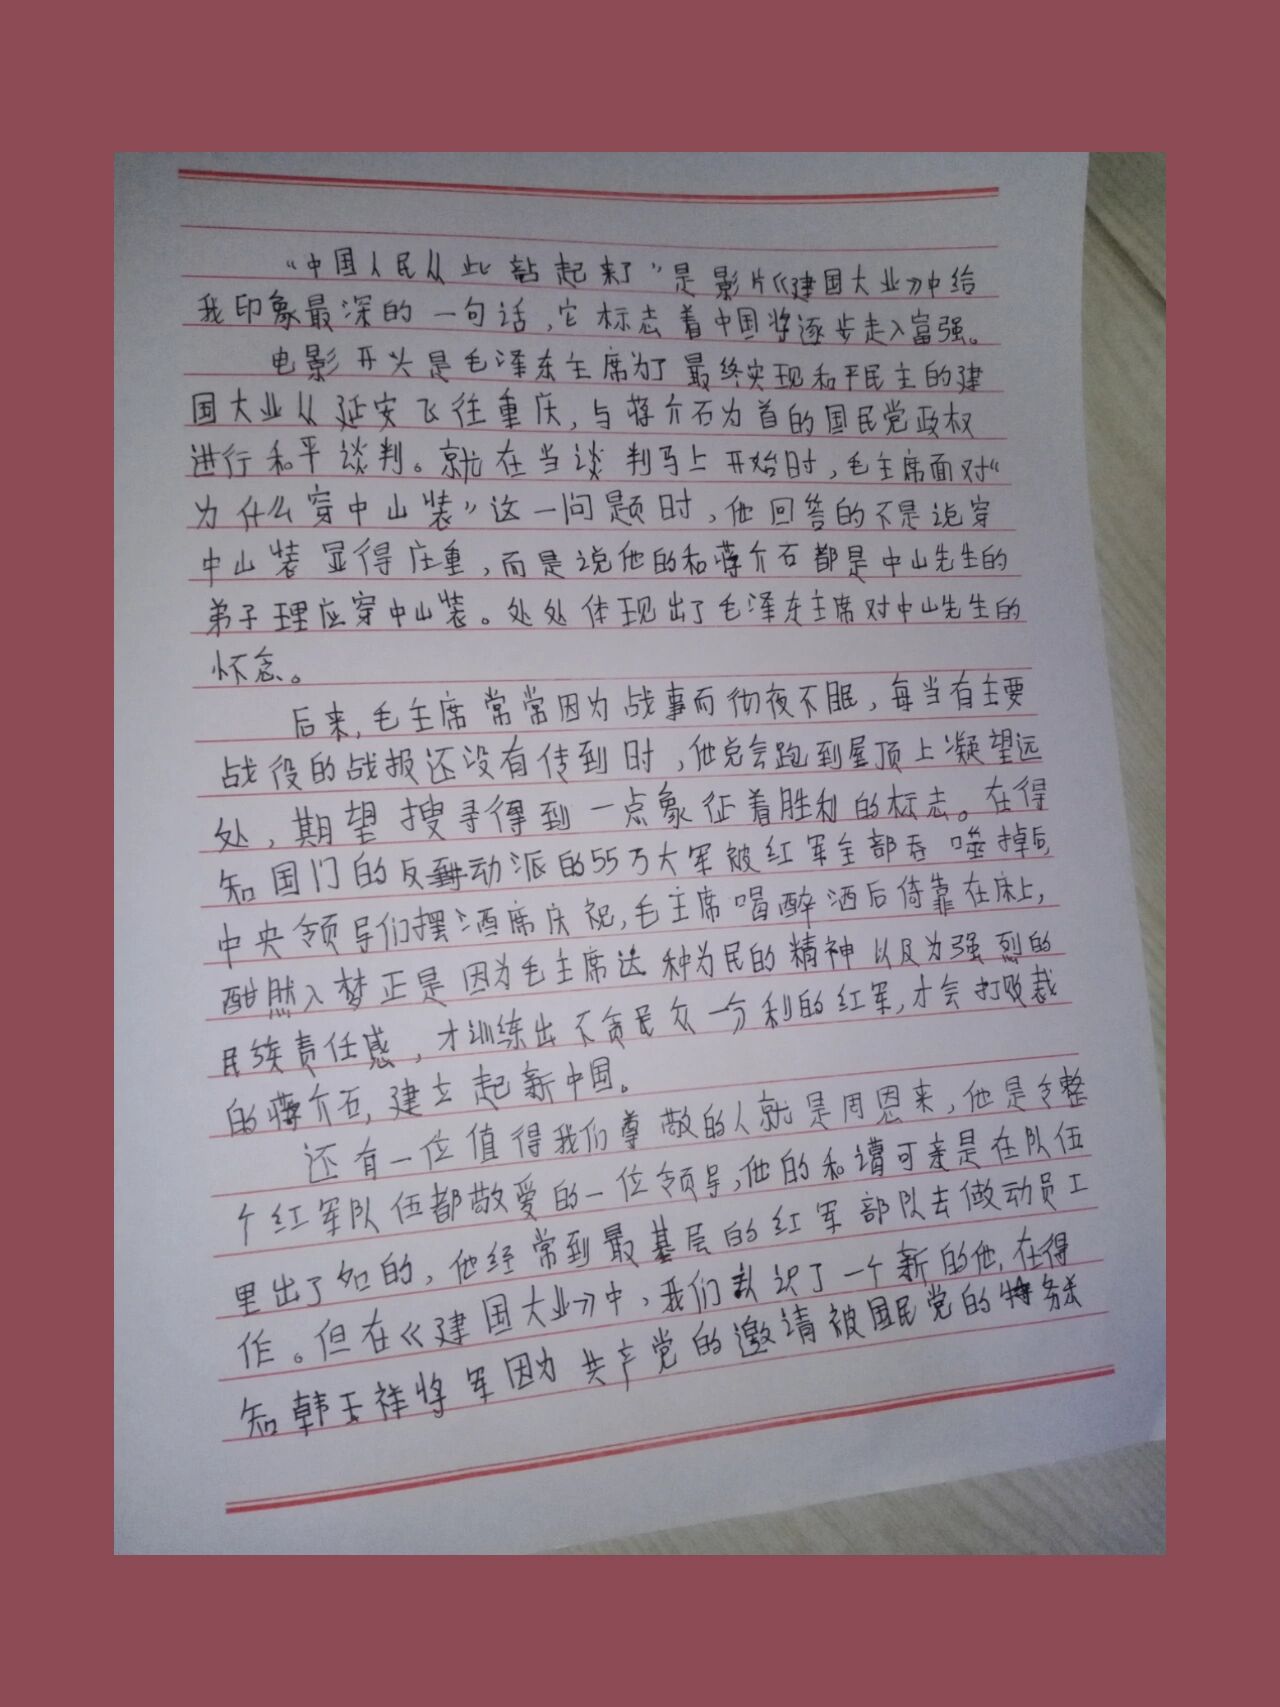 “中国人民从此站起来了”是影片《建国大业》中给
我印象最深的一句话,它标志着中国将逐步走入富强。
电影开头是毛泽东主席为了最终实现和平民主的建
国大业从延安飞往重庆,与蒋介石为首的国民党政权
进行和平谈判。就在当谈判马上开始时,毛主席面对“
为什么穿中山装”这一问题时,他回答的不是说穿
中山装显得庄重,而是说他的和蒋介石都是中山先生的
弟子理应穿中山装。处处体现出了毛泽东主席对中山先生的
怀念。
后来,毛主席常常因为战事而彻夜不眠,每当有主要
战役的战报还没有传到时,他总会跑到屋顶上凝望远
处,期望搜寻得到一点象征着胜利的标志。在得
知国门的反动派的55万大军被红军全部吞噬掉后,
中央领导们摆酒席庆祝,毛主席喝醉酒后倚靠在床上,
酣然入梦正是因为毛主席这种为民的精神以及为强烈的
民族责任感,才训练出不贪民众一分利的红军,才会打败裁
的蒋介石,建立起新中国。
还有一位值得我们尊敬的人就是周恩来,他是令整
个红军队伍都敬爱的一位领导,他的和谱可亲是在队伍
里出了名的,他经常到最基层的红军部队去做动员工
作。但在《建国大业》中,我们认识了一个新的他,在得
知韩玉祥将军因为共产党的邀请被国民党的特务杀